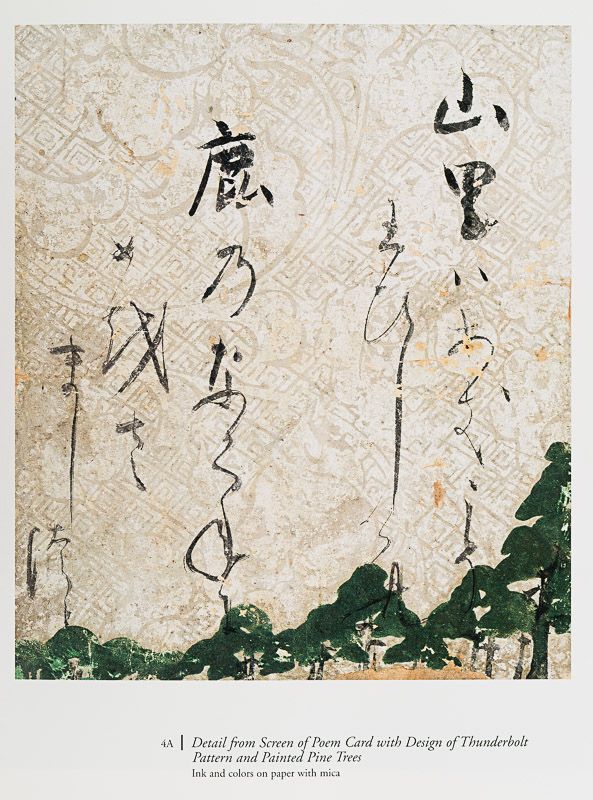 山里ハあき
わひし
鹿乃なくね
め越さ
まし
つゝ
4A
Detail from Screen of Poem Card with Design of Thunderbolt
Pattern and Painted Pine Trees
Ink and colors on paper with mica